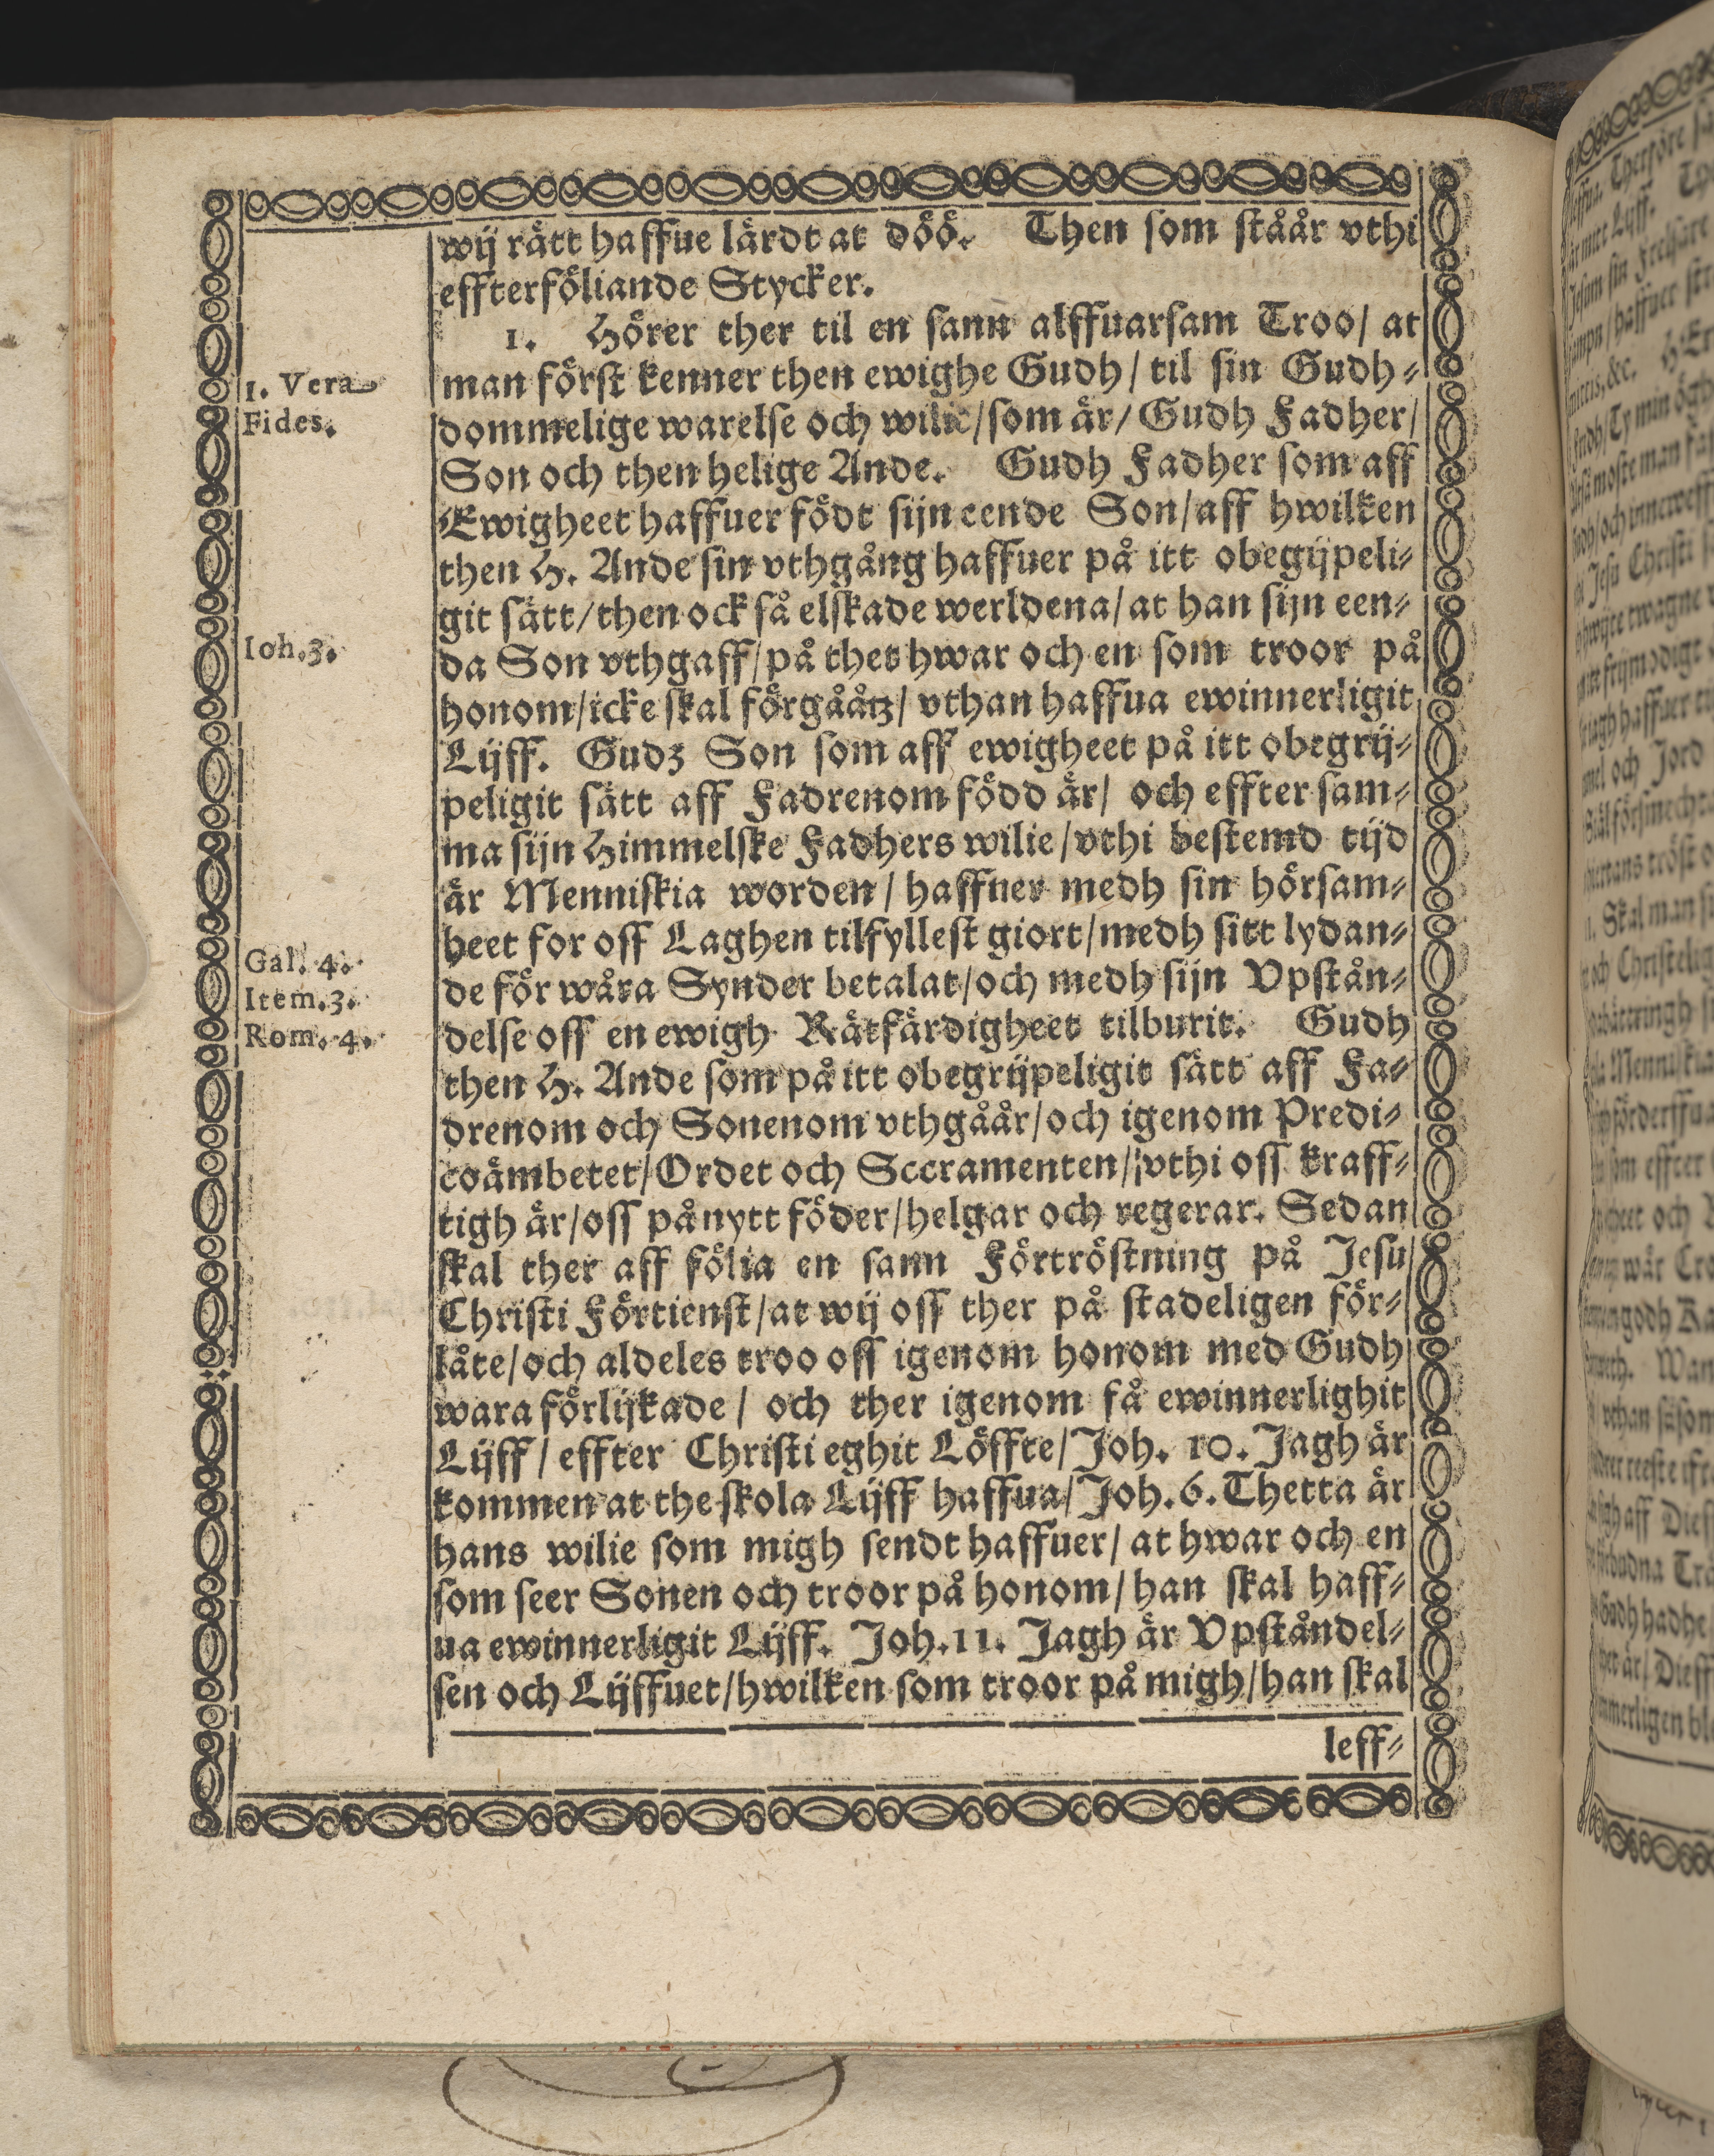 wij rätt haffue lärdt at döö. Then som ståår vthi
effterföliande Stycker.
1. Hörer ther til en sann alffuarsam Troo/ at
1. Vera
man först kenner then ewighe Gudh/ til sin Gudh⸗
Fides.
dommelige warelse och wilie/som är/ Gudh Fadher/
Son och then helige Ande. Gudh Fadher som aff
Ewigheet haffuer födt sijn eende Son/aff hwilken
then H. Ande sin vthgång haffuer på itt obegijpeli⸗
git sätt/then ock så elskade werldena/at han sijn een⸗
Ioh.3.
da Son vthgaff/på thet hwar och en som troor på
honom/icke skal förgååtz/ vthan haffua ewinnerligit
Lijff. Gudz Son som aff ewigheet på itt obegrij⸗
peligit sätt aff Fadrenom född är/ och effter sam⸗
ma sijn Himmelske Fadhers wilie/vthi bestemd tijd
är Menniskia worden/ haffner medh sin hörsam⸗
heet for oss Laghen tilfyllest giort/medh sitt lydan⸗
Gal. 4.
de för wåra Synder betalat/och medh sijn Vpstån⸗
Item.3.
delse oss en ewigh Rätfärdigheet tilburit. Gudh
Rom. 4.
then H. Ande som på itt obegrijpeligit sätt aff Fa⸗
drenom och Sonenom vthgåår/och igenom Predi⸗
coämbetet/Ordet och Sccramenten/vthi oss kraff⸗
tigh är/oss på nytt föder/helgar och regerar. Sedan
skal ther aff fölia en sann Förtröstning på Jesu
Christi Förtienst/at wij oss ther på stadeligen för⸗
låte/och aldeles troo oss igenom honom med Gudh
wara förlijkade/ och ther igenom få ewinnerlighit
Lijff/ effter Christi eghit Löffte/Joh. 10. Jagh är
kommen at the skola Lijff haffua/Joh.6. Thetta är
hans wilie som migh sendt haffuer/ at hwar och en
som seer Sonen och troor på honom/han skal haff⸗
ua ewinnerligit Lijff. Joh.11. Jagh är Vpståndel⸗
sen och Lijffuet/hwilken som troor på migh/han skal
leff⸗